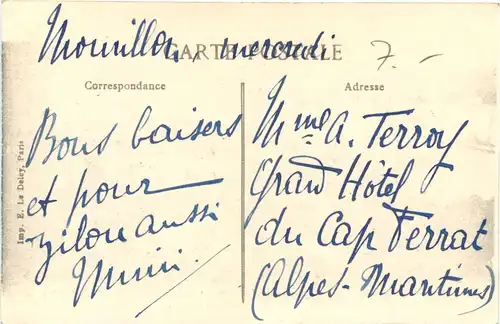 Mourillon, mercredi
CARTE POSTALE
7.-
Correspondance
Adresse
Bons baisers
et pour
Zilou aussi
Mimi.
Mme A. Terroy
Grand Hôtel
du Cap Ferrat
(Alpes-Maritimes)
Imp. E. Le Deley, Paris